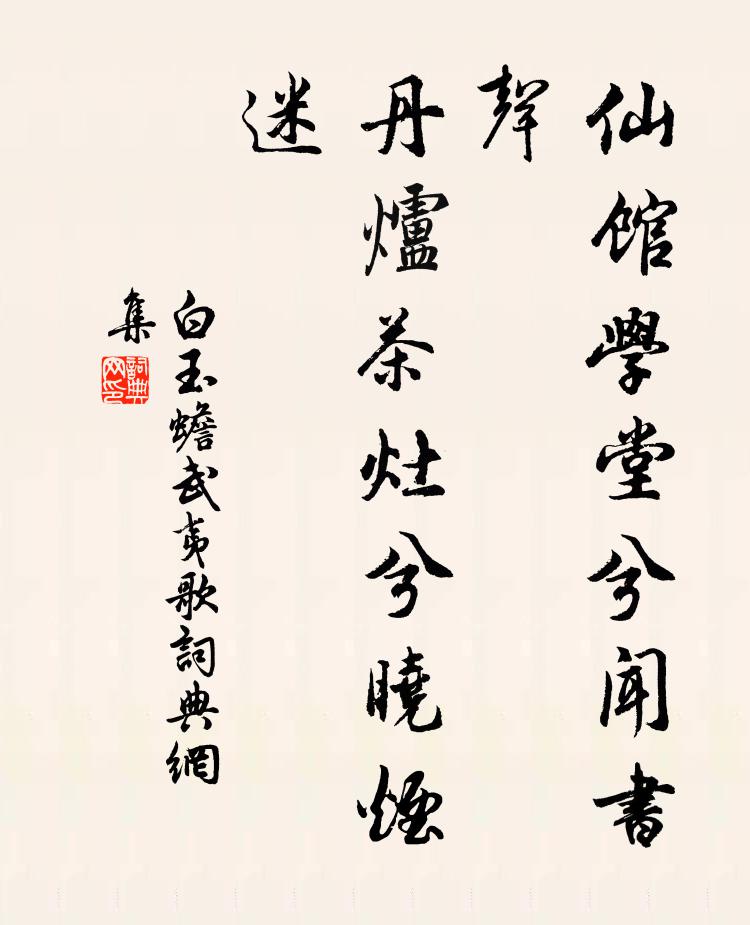 仙館學堂兮聞書
聲
丹爐茶灶兮曉煙
迷
白玉蟾武夷歌詞典網
集
詞典
网印